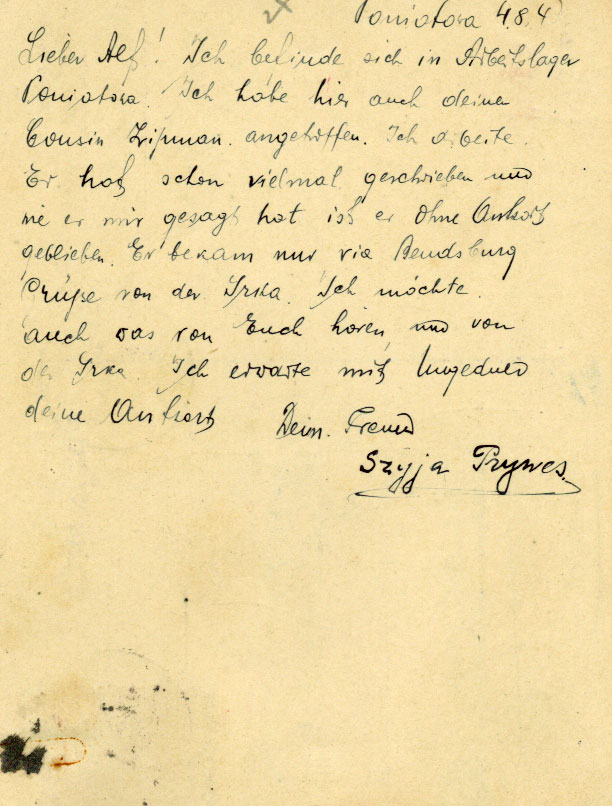 Poniatowa 4.8.4
Lieber Alf! Ich befinde sich in Arbeitslager
Poniatowa. Ich habe hier auch deinen
Cousin Zipman angetroffen. Ich arbeite.
Er hat schon vielmal geschrieben und
wie er mir gesagt hat ist er ohne Antwort
geblieben. Er bekam nur via Bendsburg
Grüße von der Irka. Ich möchte
auch was von Euch hören und von
der Irka. Ich erwarte mit Ungeduld
deine Antwort
Dein Freund
Szyja Prywes.